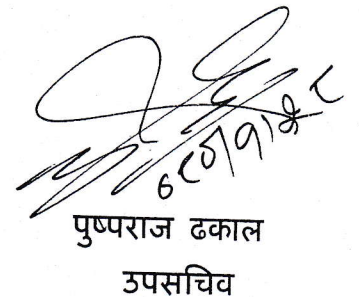 पुष्पराज ढकाल
उपसचिव